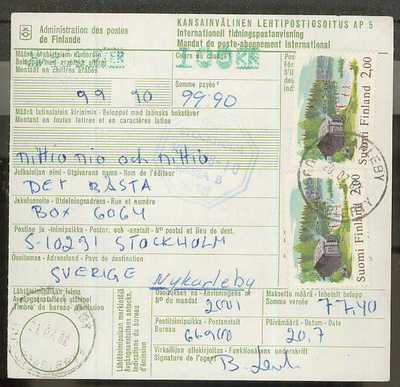 Administration des postes
de Finlande
KANSAINVÄLINEN LENTIPOSTIOSOITUS AP 5
Internationell tidningspostanvisning
Mandat de poste-abonnement international
Määrä arabialaisin numeroin
Beloppet med arabiska siffror
Montant en chiffres arabes
Cours du change
99 90
Somme payée
99.90
Määrä latinalaisin kirjaimin - Beloppet med latinska bokstäver
Montant en toutes lettres et en caractères latins
nittio nio och nittio
Julkaisijan nimi - Utgivarens namn - Nom de l'éditeur
DET BÄSTA
Jakeluosoite - Utdelningsadress - Rue et numéro
BOX 6064
Postinro ja -toimipaikka - Postnr. och -anstalt - Lieu de destination
S-10231 STOCKHOLM
Osoitemaa - Adressland - Pays de destination
SVERIGE
Nykarleby
Lähtötoimipaikan leima
Avgångsanstaltens stämpel
Timbre du bureau d'émission
Lähtötoimipaikan merkintöjä
Avgångsanstaltens anteckningar
Indications du bureau
d'émission
Osoituksen n:o - Anvisningens n:r
N° du mandat
2001
Maksettu määrä - Inbetalt belopp
Somme versée
77,40
Postitoimipaikka - Postanstalt
Bureau
66900
Päivämäärä - Datum - Date
20.7
Virkailijan allekirjoitus - Funktionärens underskrift
Signature de l'agent
Suomi Finland 2,00
Suomi Finland 2,00